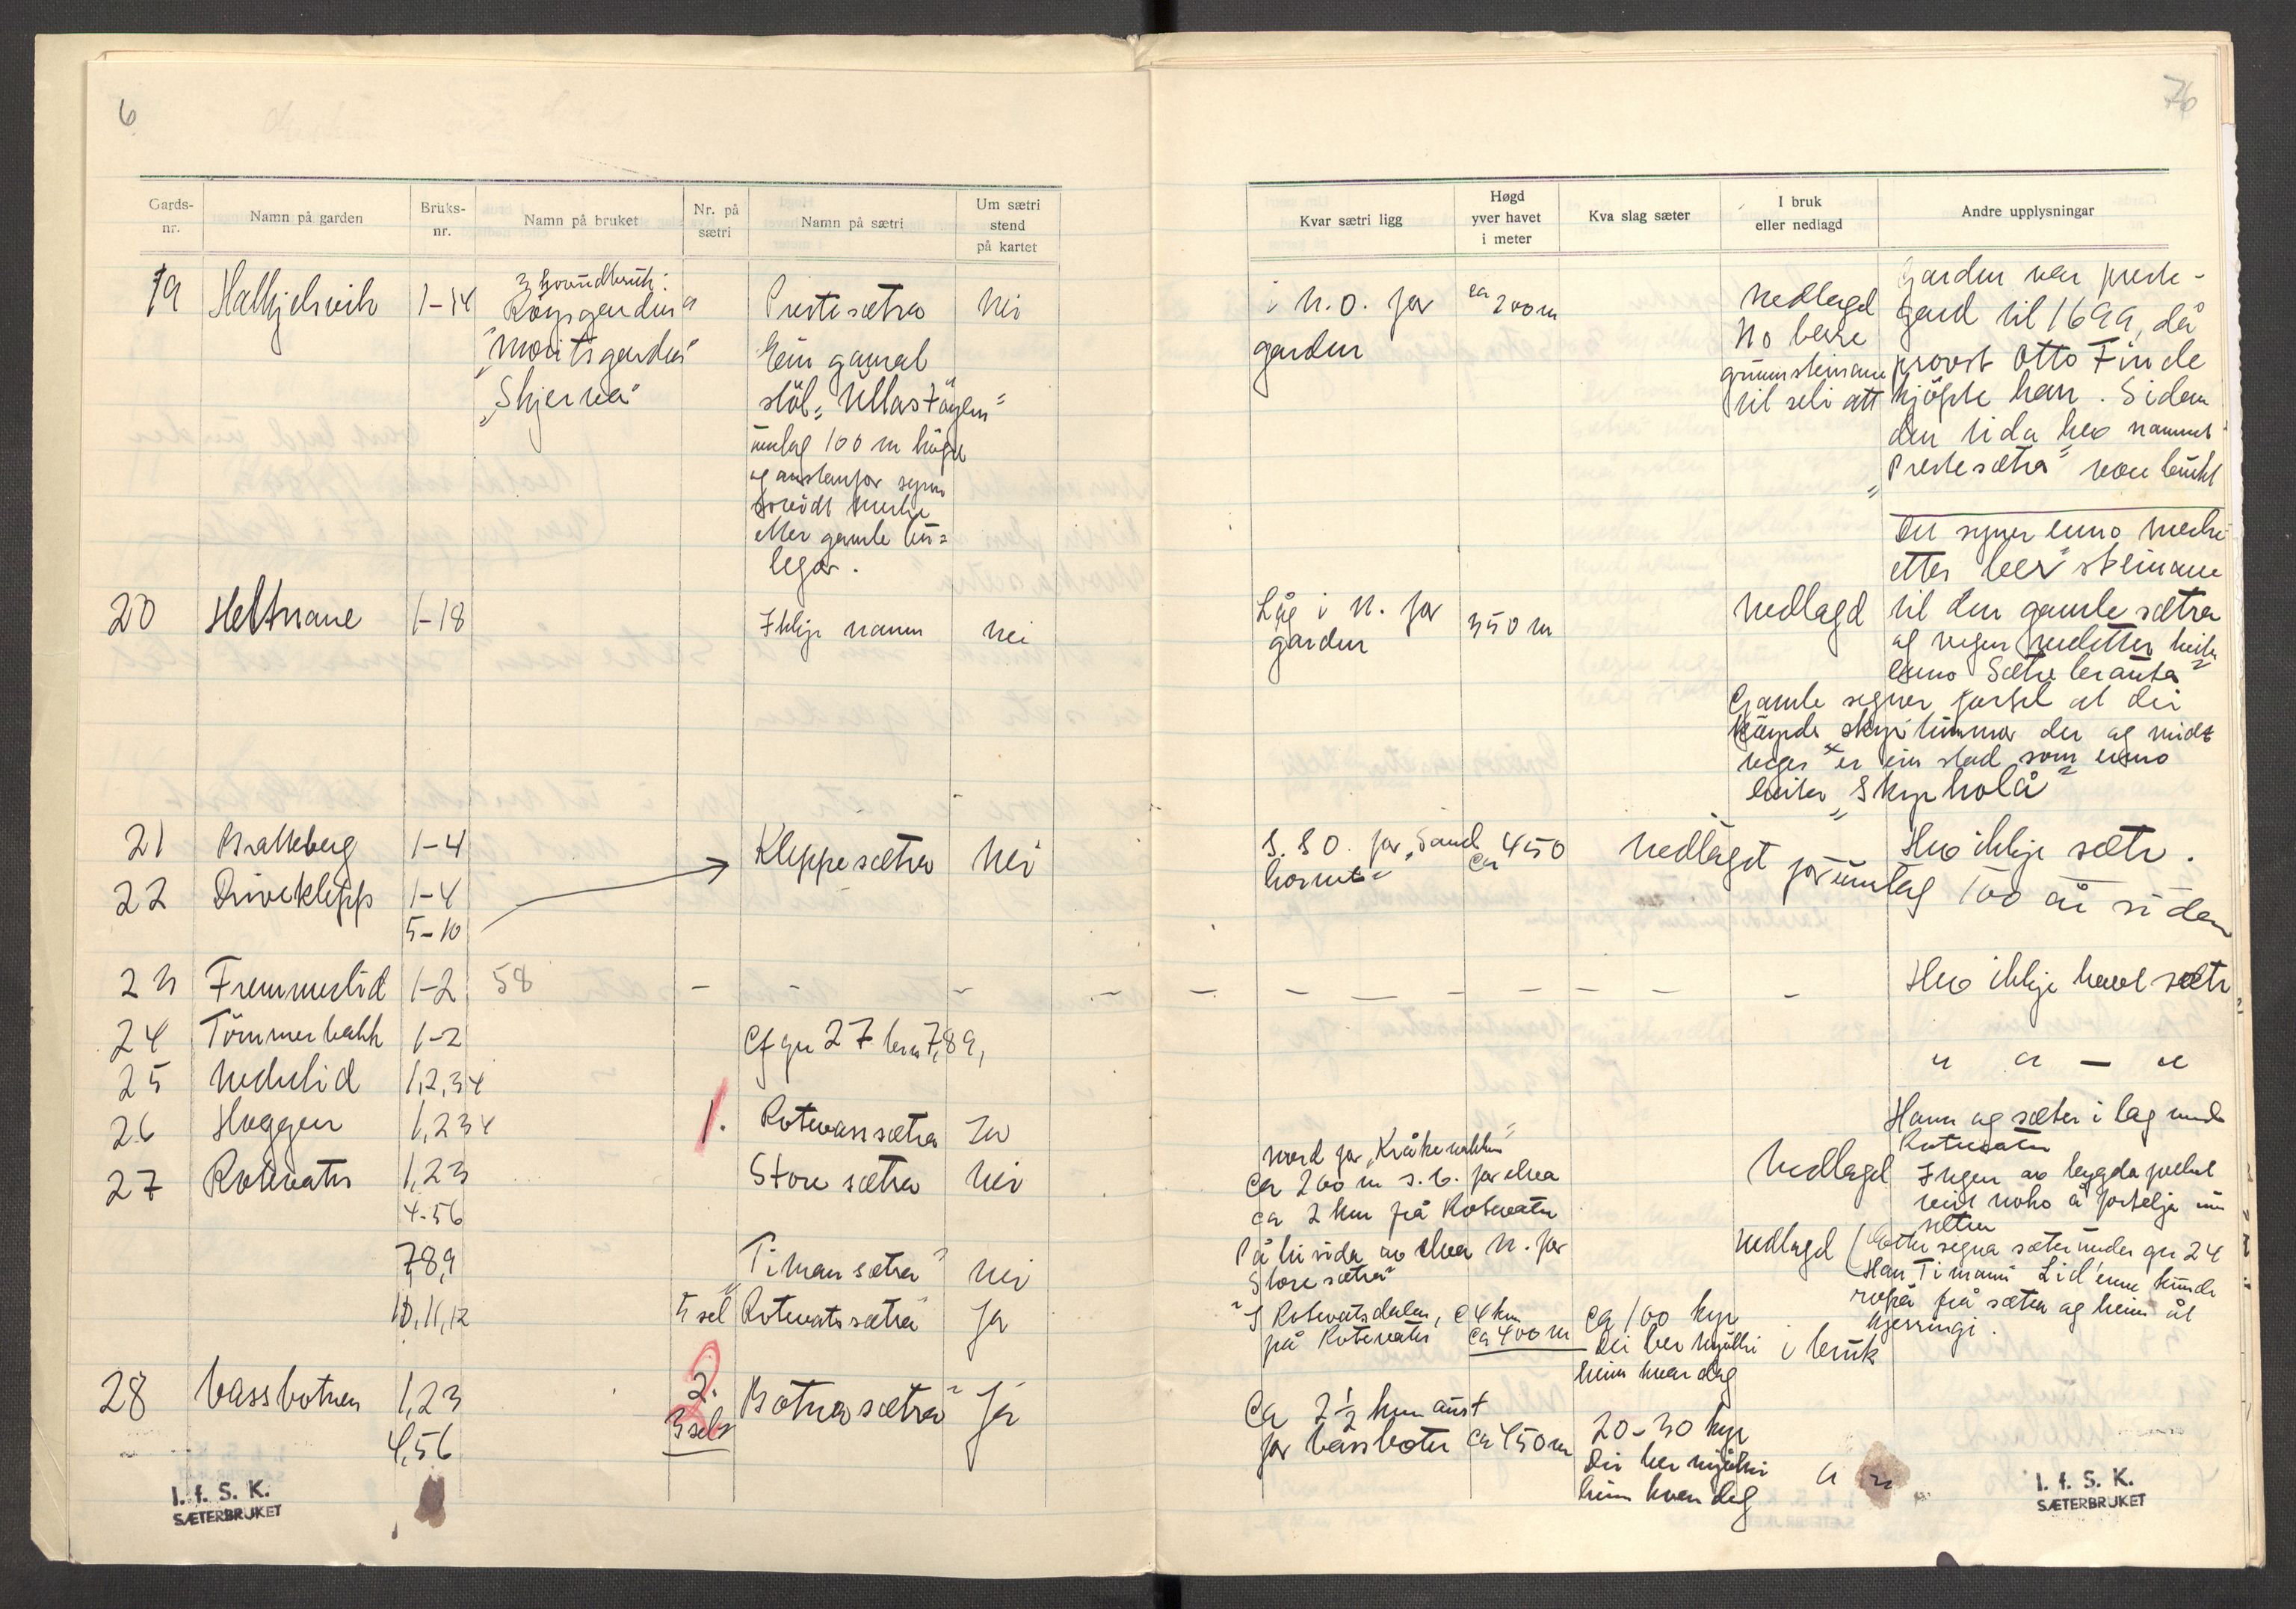 6
76
Gards-nr.
Namn på garden
Bruks-nr.
Namn på bruket
Nr. på sætri
Namn på sætri
Um sætri stend på kartet
Kvar sætri ligg
Høgd yver havet i meter
Kva slag sæter
I bruk eller nedlagd
Andre upplysningar
19 Halkjelsvik 1-14
"Moritsgarden"
"Skjerva"
Prestesætra nei
Ein gamal
støl "Ullastöylen"
umlag 100 m högd
og austanfor syner
merke
etter gamle
legor.
i N.O. for
garden
ca 200 m
Nedlagd
No berre
grunnsteinane
til seli att
Garden var preste-
gard til 1699, då
provst Otto Finde
kjöpte han. Sidan
den tida hev namnet
"Prestesætra" vore brukt
20 Heltnane 1-18
Ikkje namn nei
Låg i N. for
garden
350 m
Nedlagd
Det syner enno merke
etter steinane
til den gamle sætra
og vegen heiter
enno Sætrebrauta"
Gamle segner fortel at dei
der og midt
veges er ein stad som enno
heiter "Skyrholå"
21 Bratteberg 1-4
Hev ikkje sætr.
22 Driveklepp 1-4
5-10
Kleppesætra Nei
S.SO. for "Sand
hornet"
ca 450
Nedlagt for umlag 100 år sidan
23 Fremmerlid 1-2 58
– – – – – – – – – – – –
Hev ikkje havt sætr
24 Tömmerbakk 1-2
Cf gn 27 brn 7,8 9,
" " — "
25 Nedrelid 1,2,3 4
26 Haggen 1,2 3 4
1. Rotevassætra Ja
Hamn og sæter i lag med
Rotevatn
27 Rotevatn 1,2 3
4-56
Store sætra Nei
Nord for "Kråkenakken"
ca 200 m s.v. for elva
ca 2 km frå Rotevatn
Nedlagd
Ingen av bygda folket
veit noko å fortelja um
setra
7,8,9
"Timansætra" nei
På hi sida av elva N. for
Storesætra"
Nedlagd
(Etter segna sæter under gn 24
Han "Timann" kunde
ropa frå sætra og heim åt
kjerringi.
10, 11, 12
5 sel Rotevatssætra" Ja
I Rotevatsdalen, c 4 km
frå Rotevatn ca 400 m
ca 100 kyr
Dei ber mjölki
heim kvar dag
i bruk
28 Vassbotnen 1,2 3
4,56
2.
3 sel
Botnasætra" Ja
Ca 2½ km aust
for Vassbotn ca 450 m
20-30 kyr
Dei ber mjölki
heim kvar dag
" "
I. f. S. K.
SÆTERBRUKET
I. f. S. K.
SÆTERBRUKET